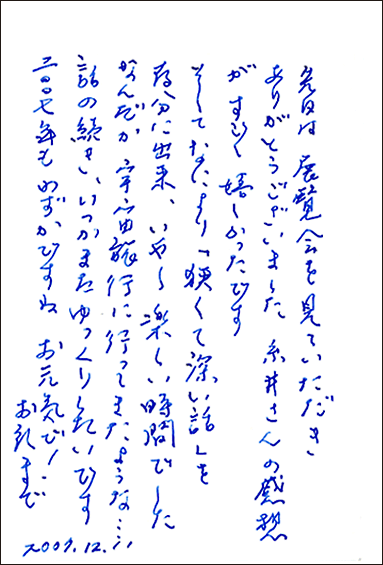 先日は展覧会を見ていただき
ありがとうございました 糸井さんの感想
がすごく嬉しかったです
そしてなにより「狭くて深い話」を
存分に出来、いや〜楽しい時間でした
なんだか宇宙旅行に行ってきたような…!
話の続き、いつかまたゆっくりしたいです
二〇〇七年もわずかですね お元気で!!
お礼まで
2007.12.